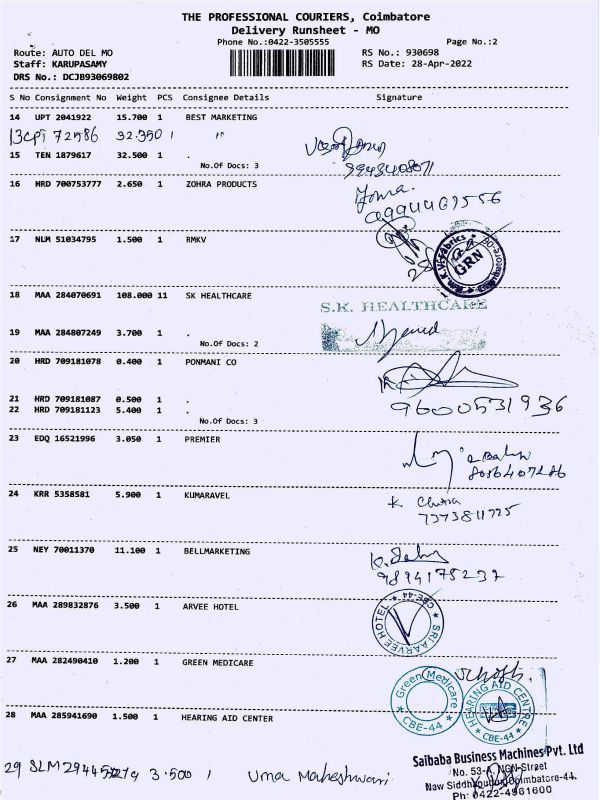 THE PROFESSIONAL COURIERS, Coimbatore
Delivery Runsheet - MO
Phone No.:0422-3505555 Page No.:2
Route: AUTO DEL MO RS No.: 930698
Staff: KARUPASAMY RS Date: 28-Apr-2022
DRS No.: DCJB93069802
S No Consignment No Weight PCS Consignee Details Signature
14 UPT 2041922 15.700 1 BEST MARKETING
72586 32.350 1 "
15 TEN 1879617 32.500 1 .
No.Of Docs: 3
9943408071
16 HRD 700753777 2.650 1 ZOHRA PRODUCTS
17 NLM 51034795 1.500 1 RMKV
GRN
18 MAA 284070691 108.000 11 SK HEALTHCARE
S.K. HEALTHCARE
19 MAA 284807249 3.700 1 .
No.Of Docs: 2
20 HRD 709181078 0.400 1 PONMANI CO
21 HRD 709181087 0.500 1 .
22 HRD 709181123 5.400 1 .
No.Of Docs: 3
9600531936
23 EDQ 16521996 3.050 1 PREMIER
8056407286
24 KRR 5358581 5.900 1 KUMARAVEL
K
7373811725
25 NEY 70011370 11.100 1 BELLMARKETING
9894175237
26 MAA 289832876 3.500 1 ARVEE HOTEL
SRI AARVEE HOTEL CBE-44
27 MAA 282490410 1.200 1 GREEN MEDICARE
Green Medicare CBE-44
28 MAA 285941690 1.500 1 HEARING AID CENTER
HEARING AID CENTRE CBE-44
29 SLM 3.500 1 Uma Maheshwari
Saibaba Business Machines Pvt. Ltd
No. 53-A, NGN Street
New Siddhapudur, Coimbatore-44.
Ph: 0422-4961600